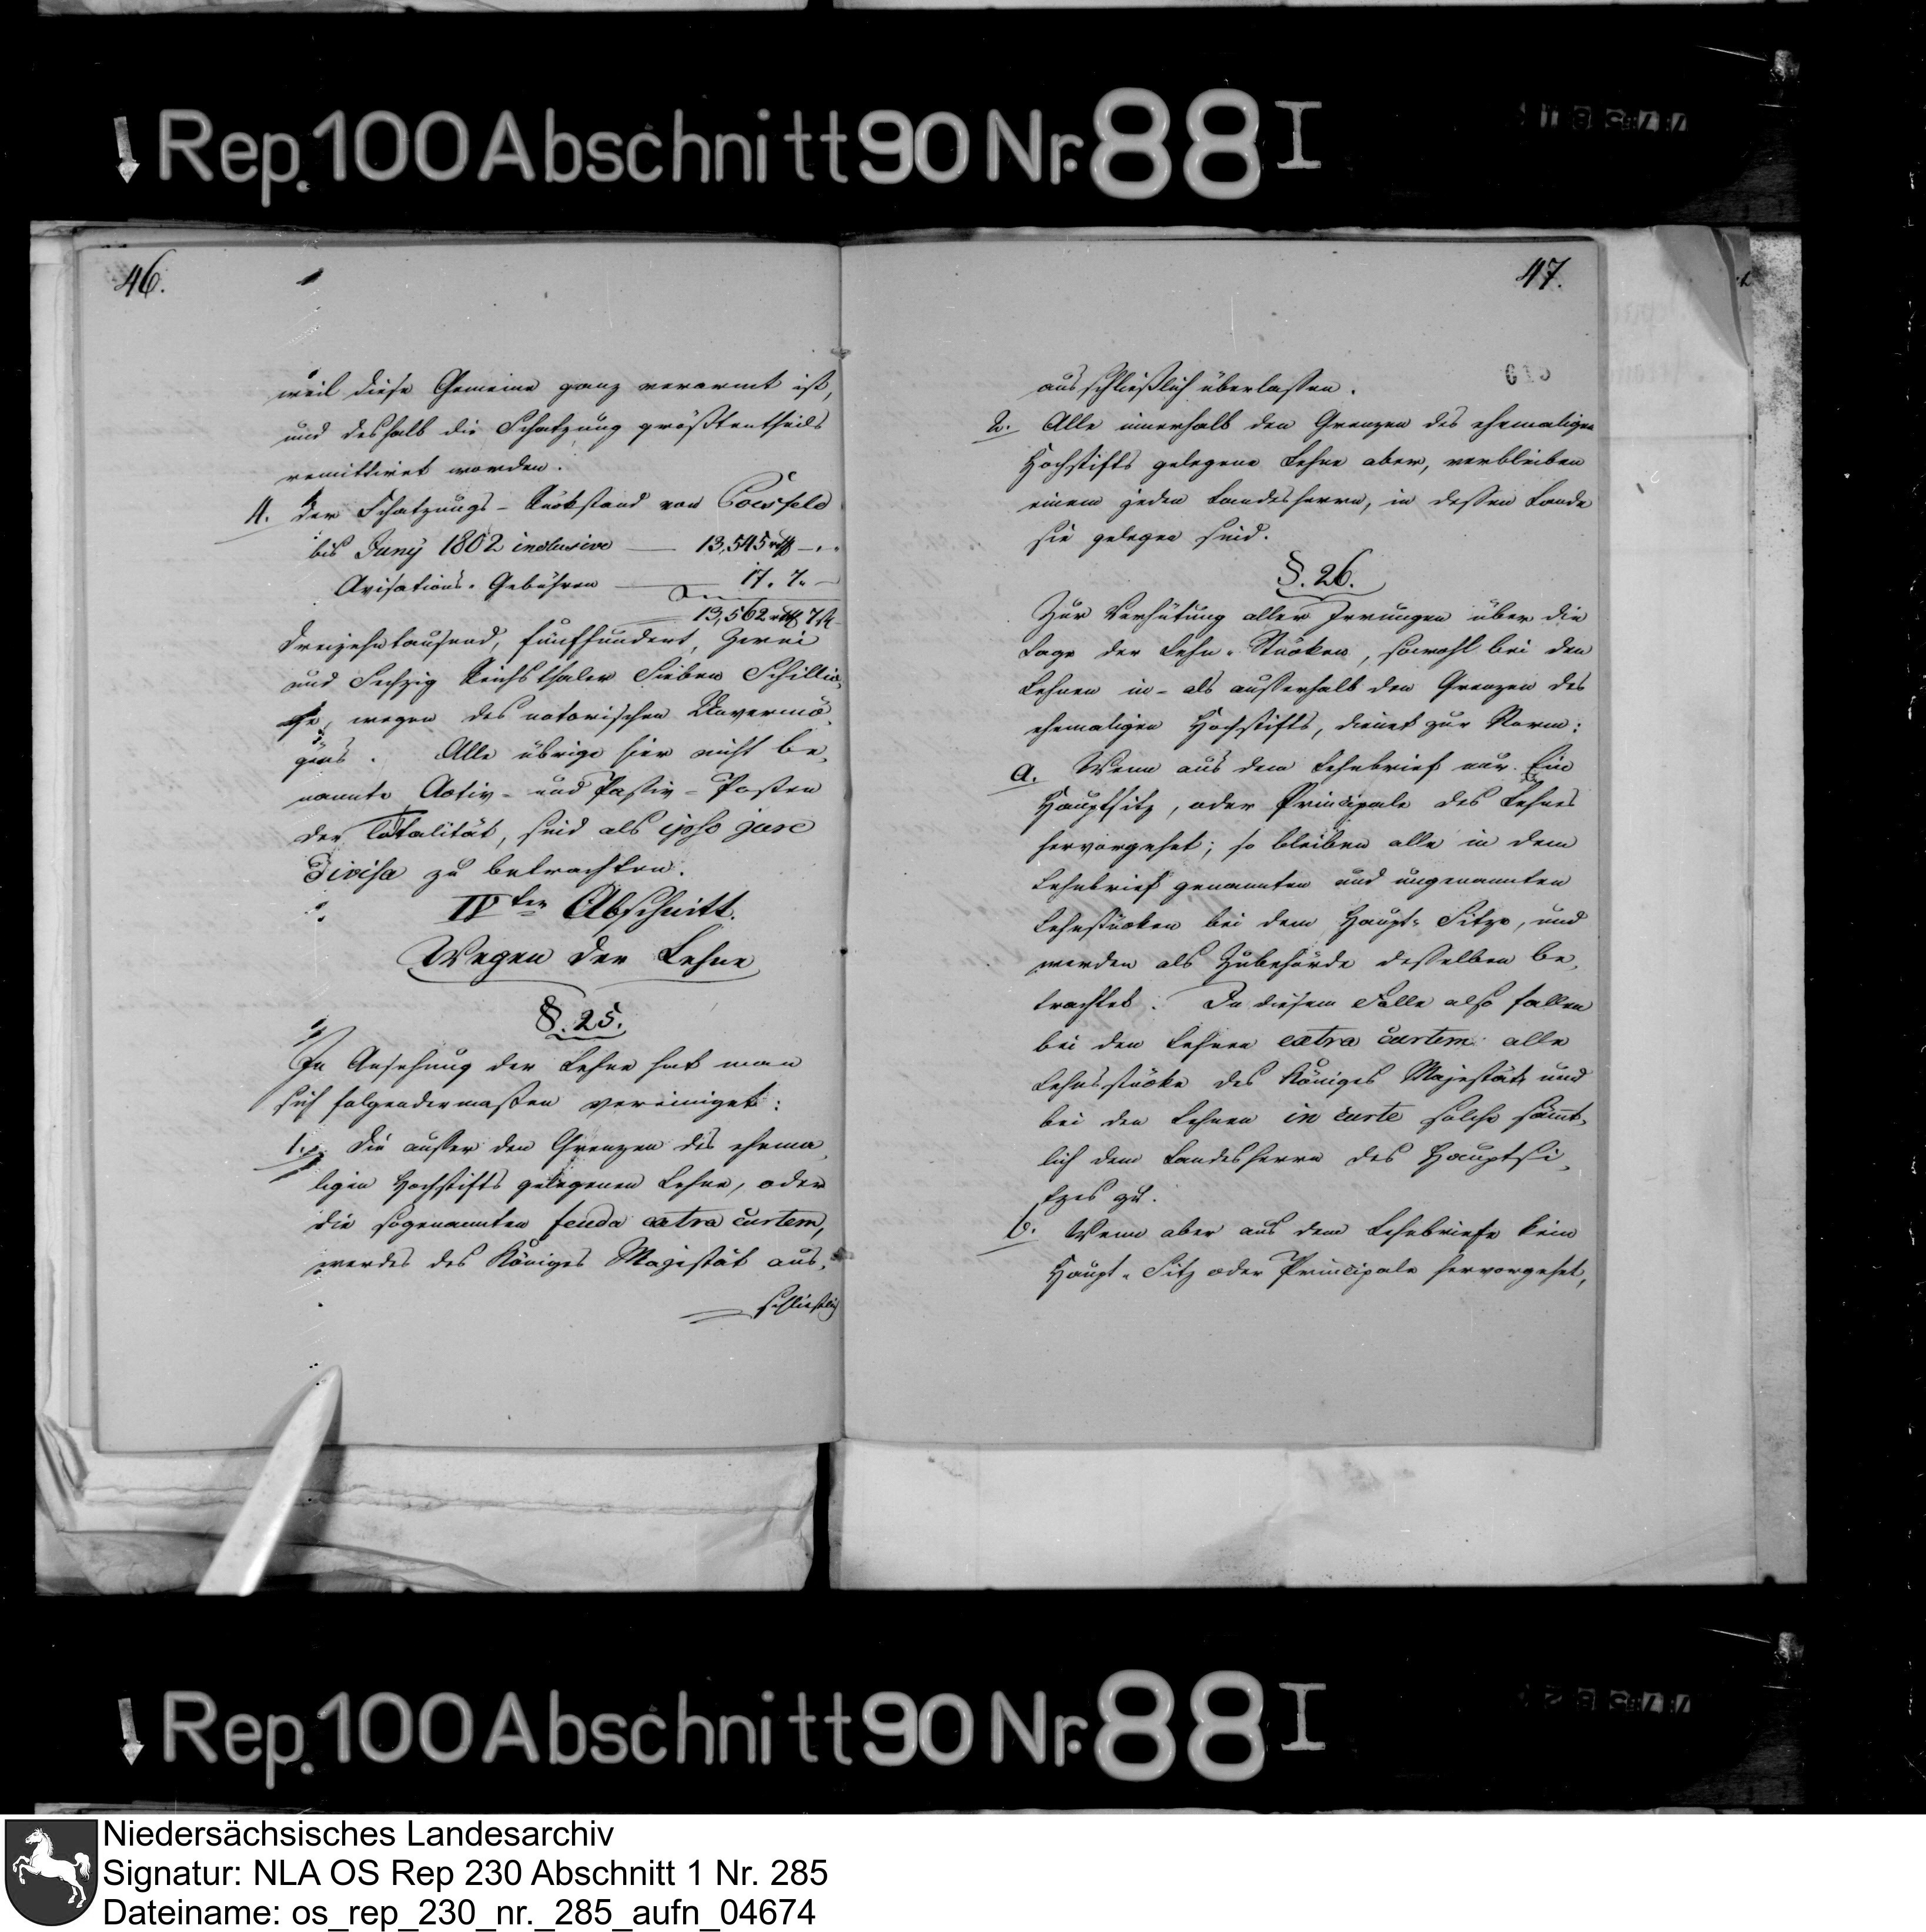 Rep. 100 Abschnitt 90 Nr. 88 I
46.
weil diese Gemeine ganz verarmt ist,
und deshalb die Schatzung größtentheils
remittiret worden.
4. Der Schatzungs-Rückstand von Coesfeld
bis Juny 1802 inclusive — 13,545 rthlr — „ „
Avisations-Gebühren — 17. 7. —
13,562 rthlr 7 ß
Dreizehntausend, fünfhundert, zwei
und Sechzig Reichsthaler Sieben Schillin„
ge, wegen des notorischen Unvermö„
gens. Alle übrige hier nicht be„
nannte Activ- und Passiv-Posten
der Totalität, sind als ipso jure
Divisa zu betrachten.
IVter Abschnitt.
Wegen der Lehne
§. 25.
In Ansehung der Lehne hat man
sich folgendermaßen vereiniget:
1. Die außer den Grenzen des ehema„
ligen Hochstifts gelegenen Lehne, oder
die sogenannten feuda extra curtem,
werden des Königes Majestät aus„
schließlich
47.
ausschließlich überlassen.
2. Alle innerhalb den Grenzen des ehemaligen
Hochstifts gelegene Lehne aber, verbleiben
einem jeden Landesherrn, in dessen Lande
sie gelegen sind.
§. 26.
Zur Verhütung aller Irrungen über die
Lage der Lehn-Stücken, sowohl bei den
Lehnen in- als außerhalb den Grenzen des
ehemaligen Hochstifts, dienet zur Norm:
a. Wenn aus dem Lehnbrief nur Ein
Hauptsitz, oder Principale des Lehnes
hervorgehet; so bleiben alle in dem
Lehnbrief genannten und ungenannten
Lehnstücken bei dem Haupt-Sitze, und
werden als Zubehörde desselben be„
trachtet. In diesem Falle also fallen
bei den Lehnen extra curtem alle
Lehnsstücke des Königes Majestät und
bei den Lehnen in curte solche sämt„
lich dem Landesherrn des Hauptsi„
tzes zu.
b. Wenn aber aus dem Lehnbriefe kein
Haupt-Sitz oder Principale hervorgehet,
Rep. 100 Abschnitt 90 Nr. 88 I
Niedersächsisches Landesarchiv
Signatur: NLA OS Rep 230 Abschnitt 1 Nr. 285
Dateiname: os_rep_230_nr._285_aufn_04674